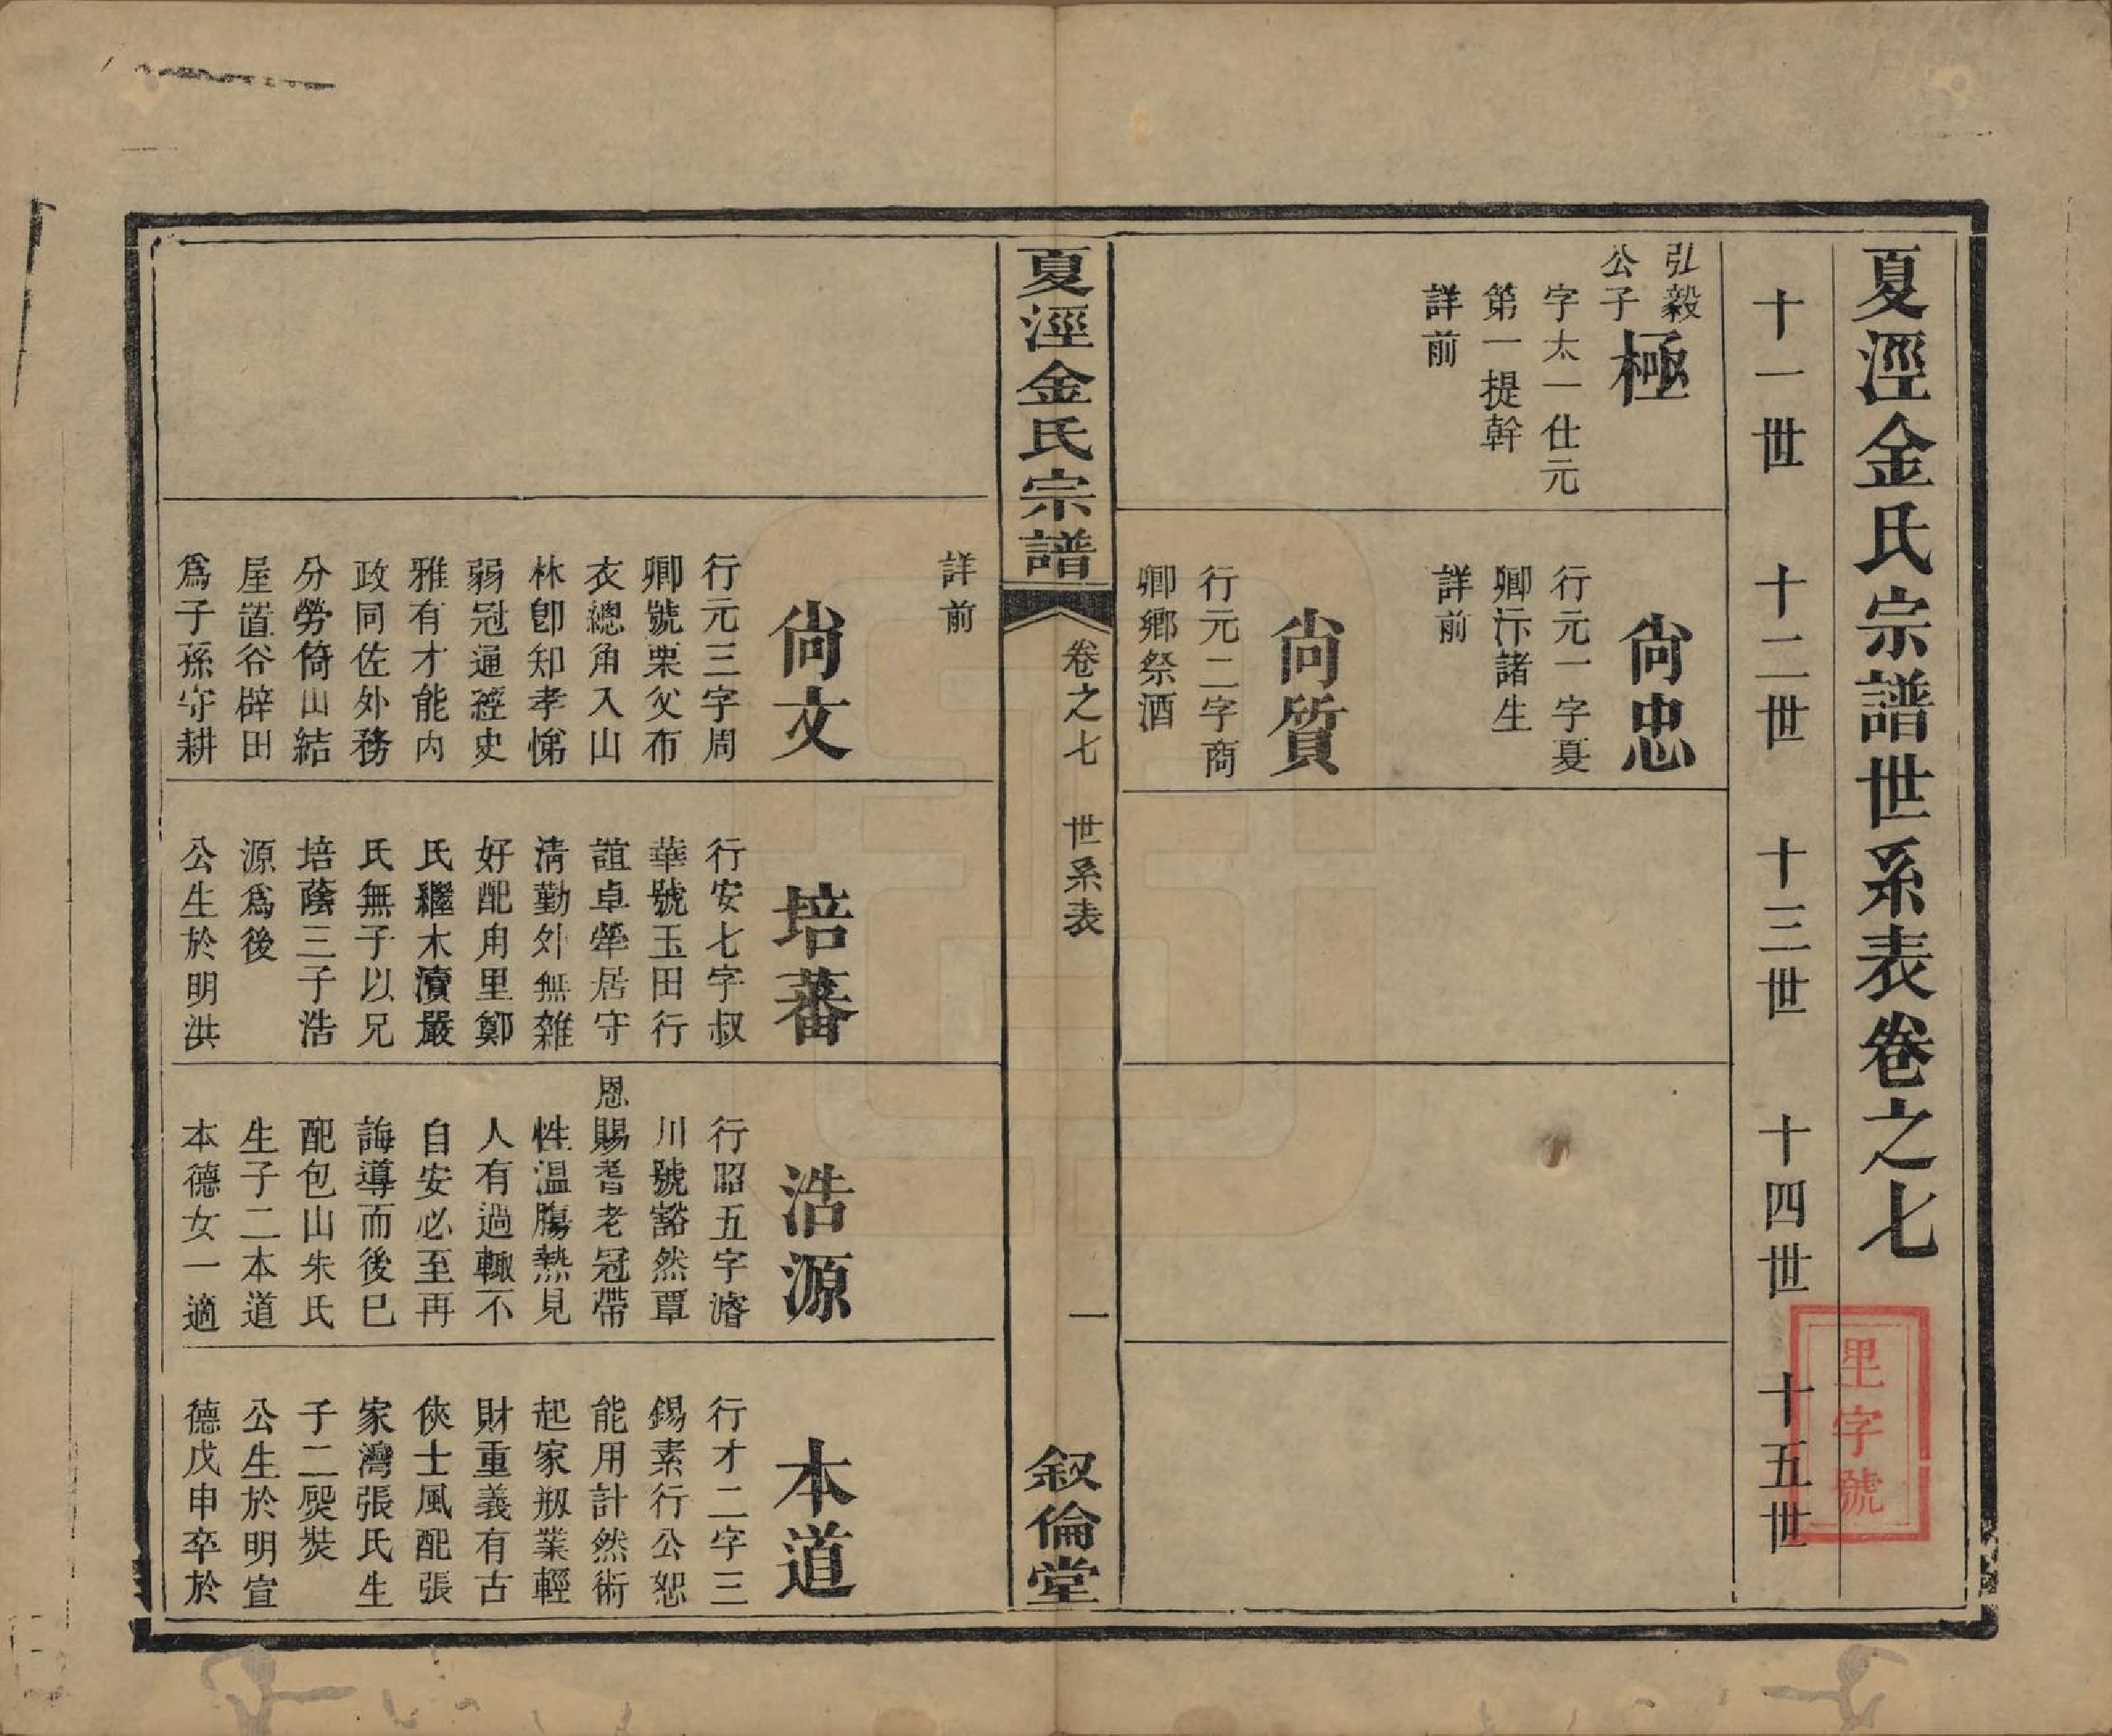 夏涇金氏宗譜世系表卷之七
里字號
十一世
十二世
十三世
十四世
十五世
弘毅
公子
極
字太一仕元
第一提幹
詳前
尙忠
行元一字夏
卿汴諸生
詳前
尙質
行元二字商
卿鄕祭酒
夏涇金氏宗譜
卷之七
世系表
一
叙倫堂
詳前
尙文
行元三字周
卿號栗父布
衣總角入山
林卽知孝悌
弱冠通經史
雅有才能內
政同佐外務
分勞倚山結
屋置谷辟田
爲子孫守耕
培蕃
行安七字叔
華號玉田行
誼卓犖居守
淸勤外無雜
好配甪里鄭
氏繼木瀆嚴
氏無子以兄
培蔭三子浩
源爲後
公生於明洪
浩源
行昭五字濬
川號豁然覃
恩賜耆老冠帶
性溫膓熱見
人有過輒不
自安必至再
誨導而後已
配包山朱氏
生子二本道
本德女一適
本道
行才二字三
錫素行公恕
能用計然術
起家剏業輕
財重義有古
俠士風配張
家灣張氏生
子二煚燓
公生於明宣
德戊申卒於